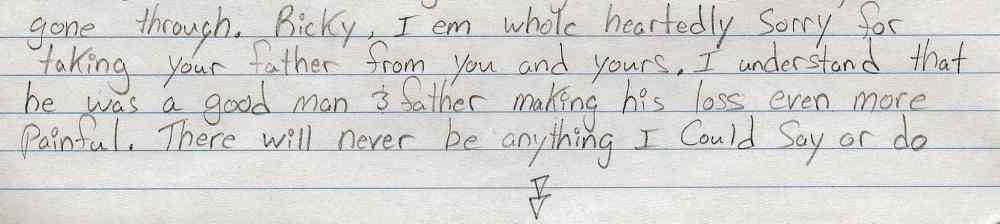 gone through. Ricky, I em whole heartedly Sorry for
taking your father from you and yours. I understand that
he was a good man & father making his loss even more
Painful. There will never be anything I Could Say or do